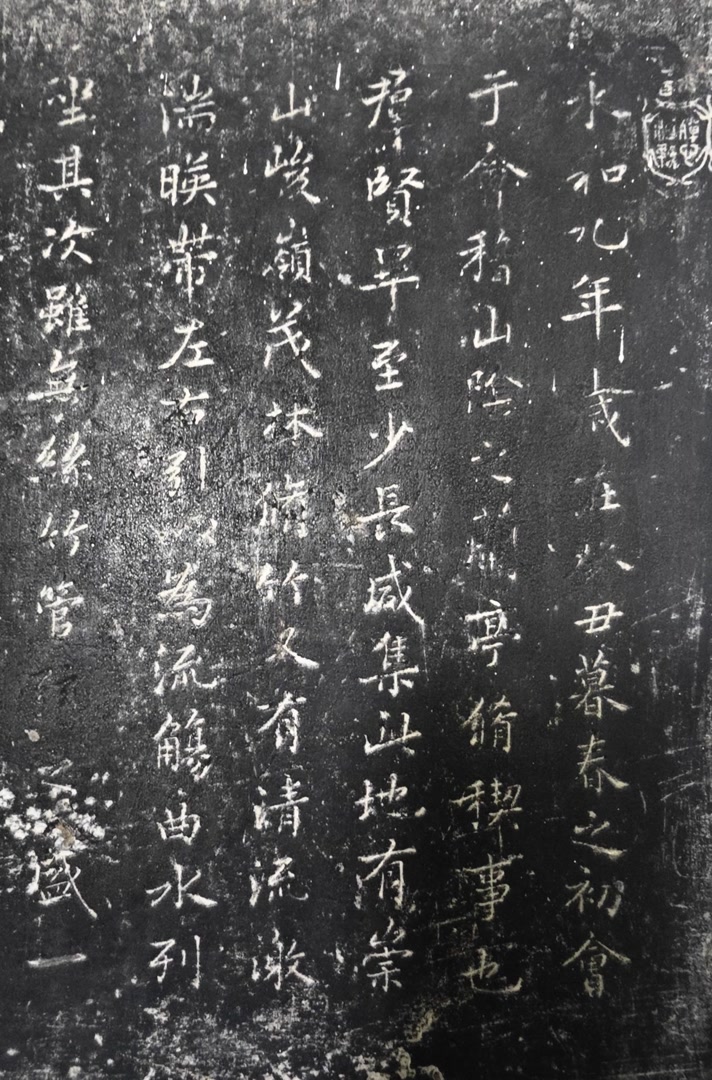 永和九年歲在癸丑暮春之初會
于會稽山陰之蘭亭脩稧事也
羣賢畢至少長咸集此地有崇
山峻嶺茂林脩竹又有清流激
湍暎帶左右引以為流觴曲水列
坐其次雖無絲竹管弦之盛一